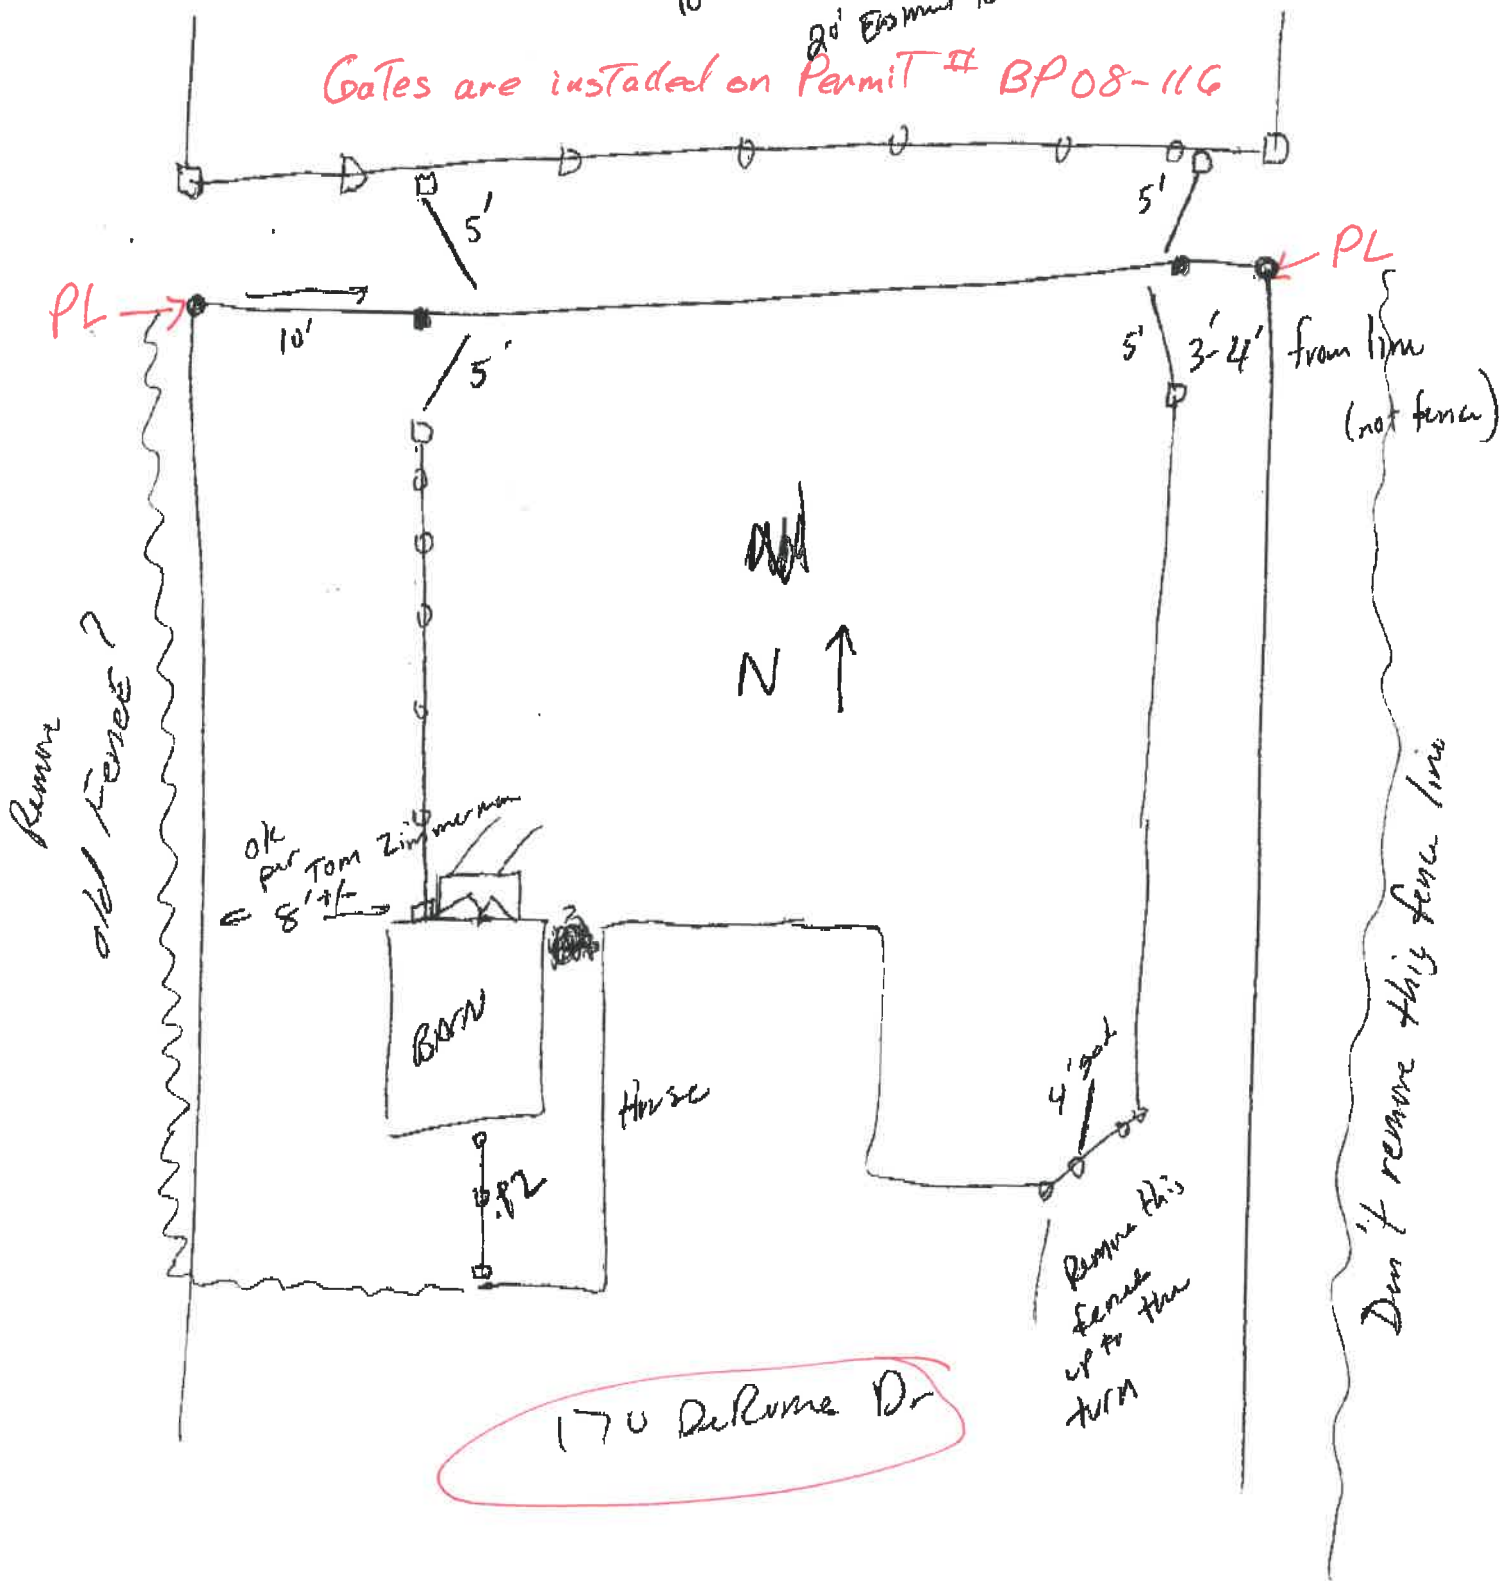 10
20' Easment
Gates are installed on Permit # BP08-116
5'
5'
PL
PL
10'
5'
5'
3'-4' from line
(not fence)
N
Remove
old Fence?
ok
per Tom Zimmerman
8' +/-
BARN
House
4'
Remove this
fence
up to the
turn
Don't remove this fence line
170 DeRome Dr